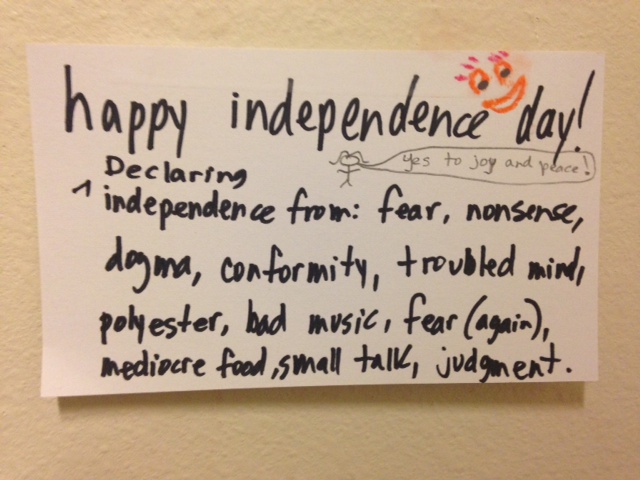 happy independence day!
yes to joy and peace!
Declaring
^ independence from: fear, nonsense,
dogma, conformity, troubled mind,
polyester, bad music, fear (again),
mediocre food, small talk, judgment.